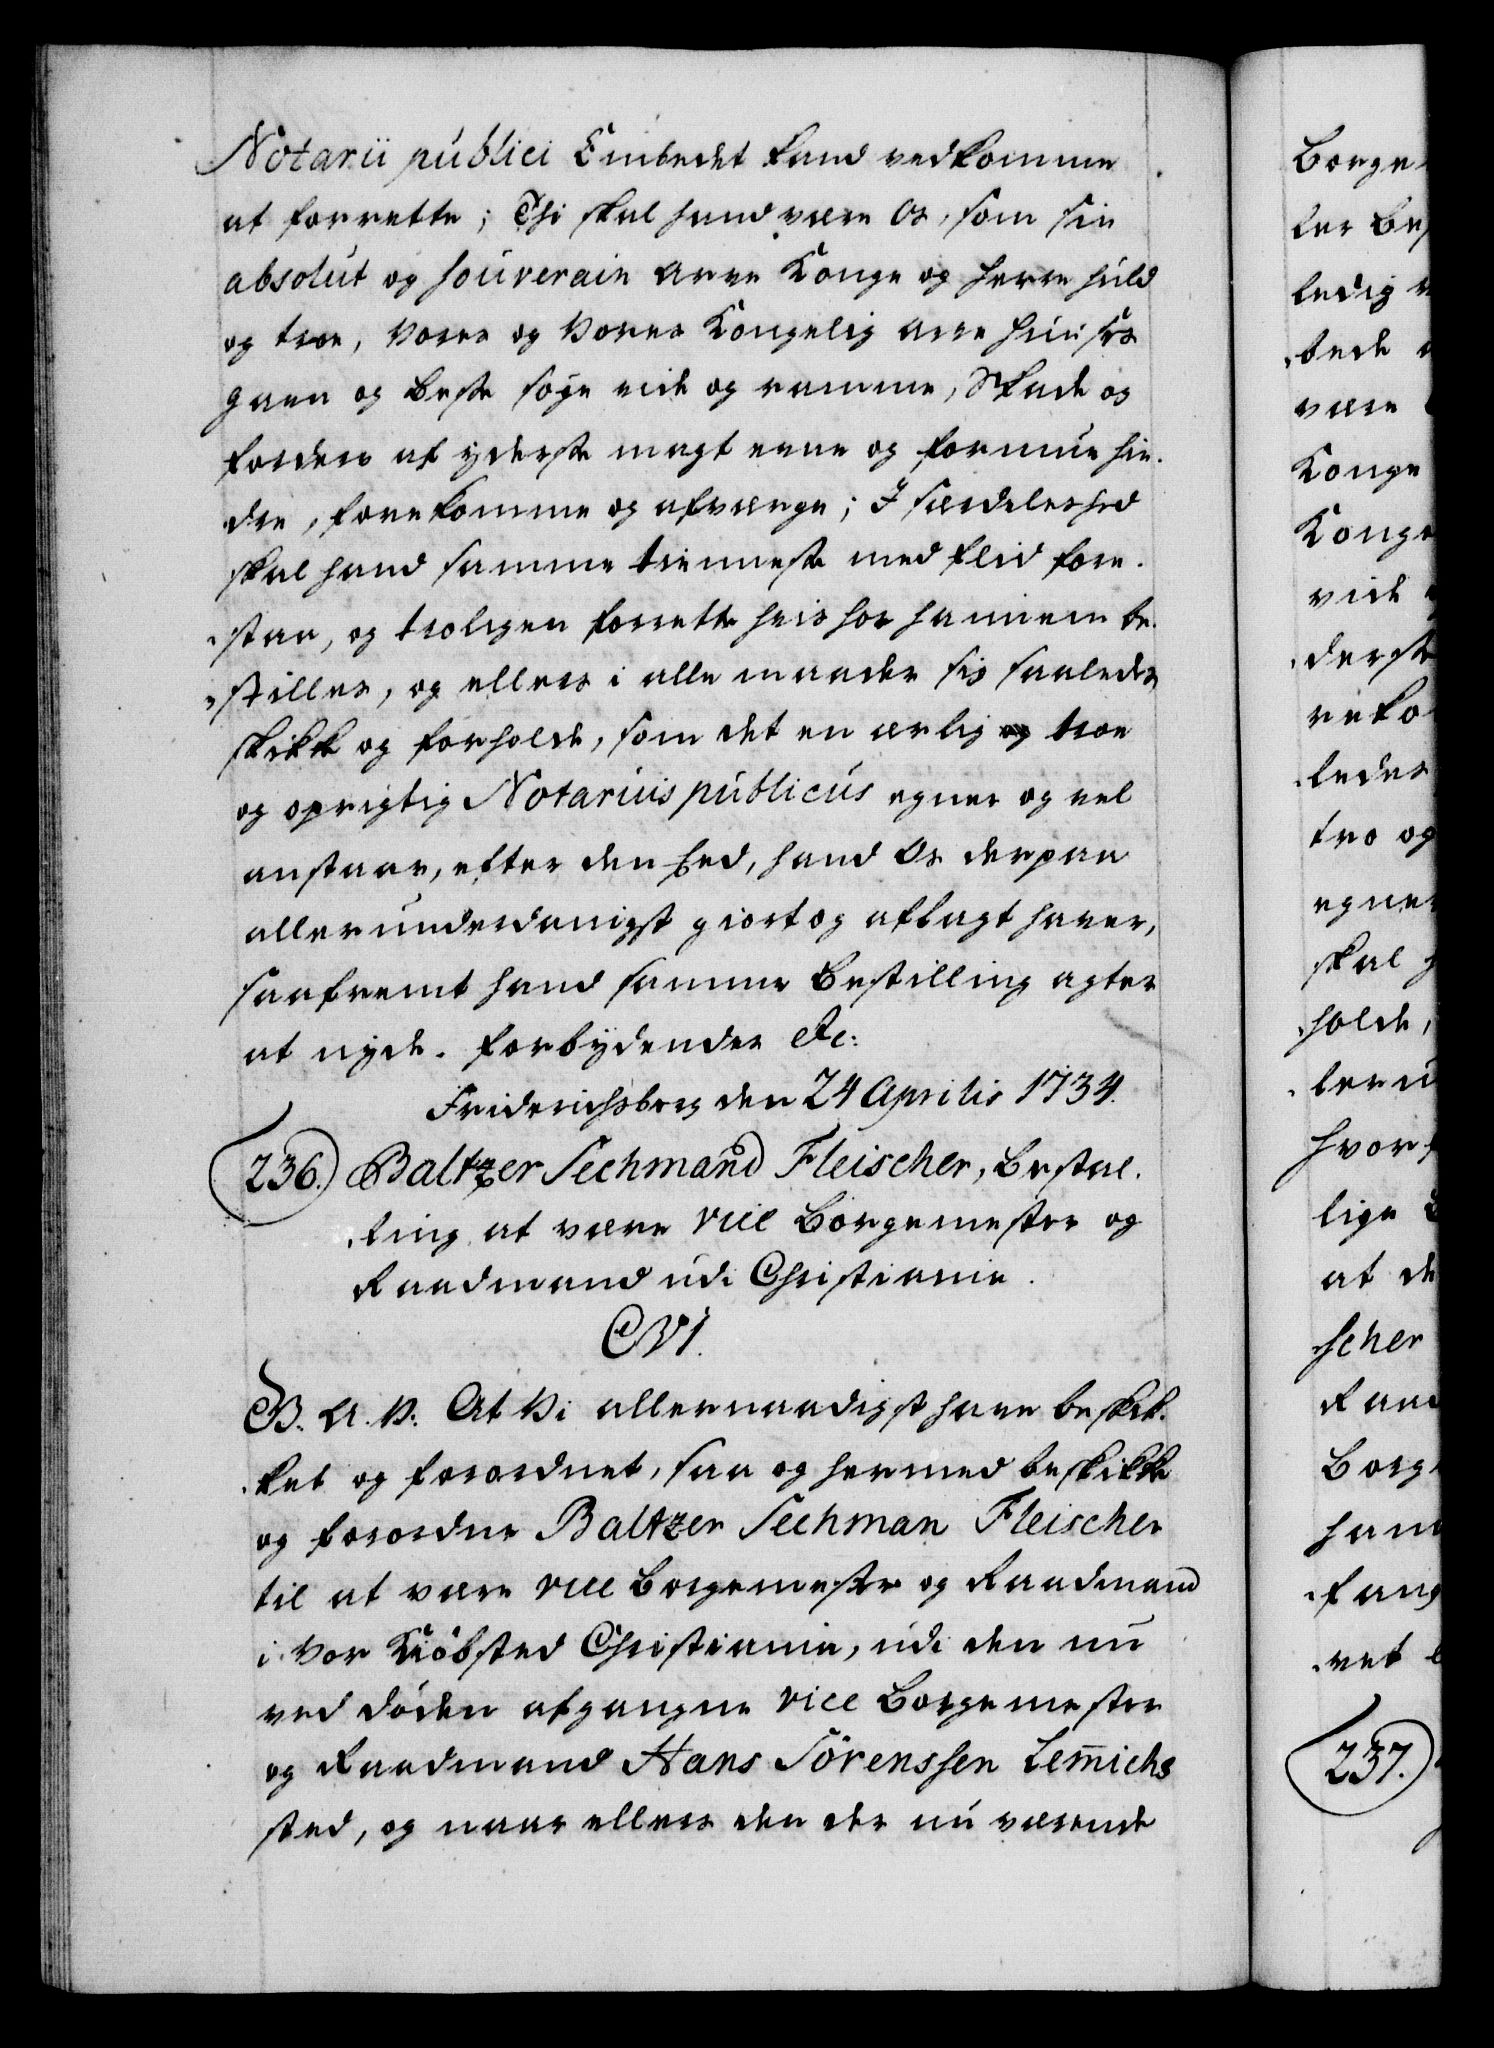 Notarii publici Embedet kand vedkomme
at forrette; Thi skal hand være Os, som sin
absolut og souverain Arve Konge og Herre huld
og troe, Vores og Vores Kongelig Arve Huuses
gavn og beste søge vide og ramme, Skade og
forderv af yderste magt evne og formue hin-
dre, forekomme og afverge; I særdeleshed
skal hand samme tienneste med flid fore-
staae, og troligen forrette hvis hos hannem be-
stilles, og ellers i alle maader sig saaledes
skikke og forholde, som det en ærlig og troe
og oprigtig Notarius publicus egner og vel
anstaar, efter den Eed, hand Os derpaa
allerunderdanigst giort og aflagt haver,
saafremt hand samme Bestilling agter
at nyde. Forbydendes etc:
Friderichsberg den 24 Aprilis 1734.
236. Baltzer Sechmand Fleischer, Bestal-
ling at være vice Borgemester og
Raadmand udi Christiania.
CVI.
G. A. V. At Vi allernaadigst have beskik-
ket og forordnet, saa og hermed beskikke
og forordne Baltzer Sechman Fleischer
til at være vice Borgemester og Raadmand
i Vor Kiøbsted Christiania, udi den nu
ved døden afgangne vice Borgemester
og Raadmand Hans Sørenssen Lem̄ichs
sted, og naar ellers den der nu værende
Borge-
ler bes
ledig
bede
være
Konge
Konge
vide
derste
reko
ledes
tro og
egner
skal
holde,
leru
hvor
lige
at de
scher
Raad
Borge
ham
fang
vet
237.